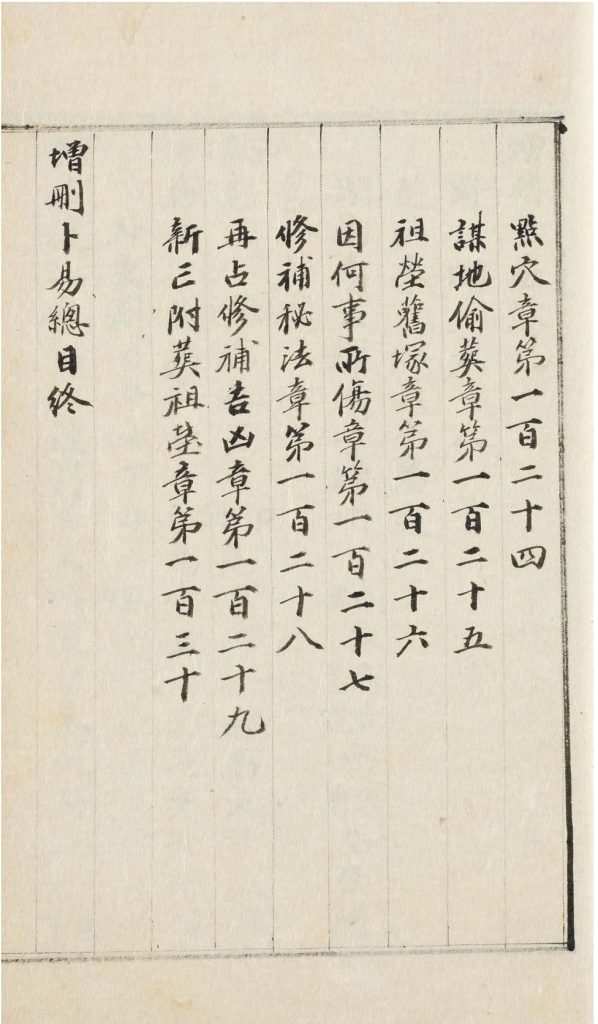 點穴章第一百二十四
謀地偷葬章第一百二十五
祖塋舊塚章第一百二十六
因何事所傷章第一百二十七
修補秘法章第一百二十八
再占修補吉凶章第一百二十九
新亡附葬祖塋章第一百三十
增刪卜易總目終